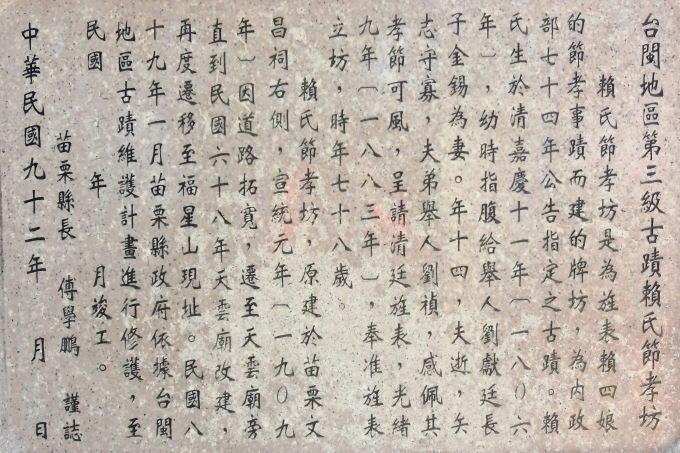 台閩地區第三級古蹟賴氏節孝坊
賴氏節孝坊是為旌表賴四娘
的節孝事蹟而建的牌坊，為內政
部七十四年公告指定之古蹟。賴
氏生於清嘉慶十一年〔一八０六
年〕，幼時指腹給舉人劉獻廷長
子金錫為妻。年十四，夫逝，矢
志守寡，夫弟舉人劉禎，感佩其
孝節可風，呈請清廷旌表，光緒
九年〔一八八三年〕，奉准旌表
立坊，時年七十八歲。
賴氏節孝坊，原建於苗栗文
昌祠右側，宣統元年〔一九０九
年〕因道路拓寬，遷至天雲廟旁
直到民國六十八年天雲廟改建，
再度遷移至福星山現址。民國八
十九年一月苗栗縣政府依據台閩
地區古蹟維護計畫進行修護，至
民國　年　月竣工。
苗栗縣長　傅學鵬　謹誌
中華民國九十二年　月　日